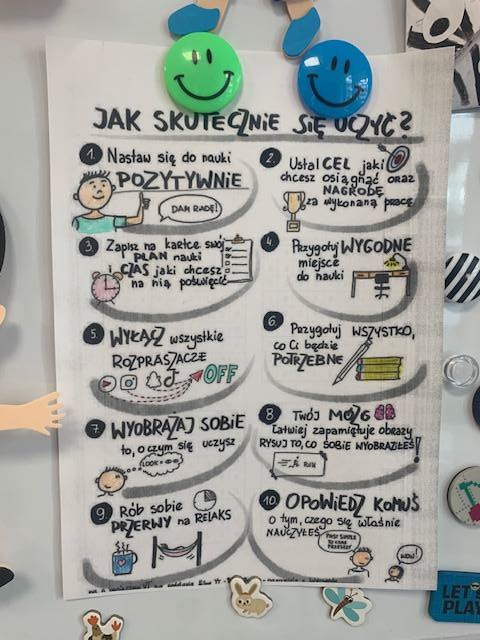 JAK SKUTECZNIE SIĘ UCZYĆ?
1. Nastaw się do nauki
POZYTYWNIE
DAM RADĘ!
2. Ustal CEL jaki
chcesz osiągnąć oraz
NAGRODĘ
za wykonaną pracę
3 Zapisz na kartce swój
PLAN nauki
i CZAS jaki chcesz
na nią poświęcić
4 Przygotuj WYGODNE
miejsce
do nauki
5. WYŁĄCZ wszystkie
ROZPRASZACZE
OFF
6. Przygotuj WSZYSTKO,
co Ci będzie
POTRZEBNE
7 WYOBRAŻAJ SOBIE
to, o czym się uczysz
LOOK =
8 TWÓJ MÓZG
łatwiej zapamiętuje obrazy
RYSUJ TO, CO SOBIE WYOBRAZIŁEŚ!
RUN
9 Rób sobie
PRZERWY na RELAKS
10. OPOWIEDZ KOMUŚ
o tym, czego się właśnie
NAUCZYŁEŚ
PAST SIMPLE
TO CZAS
PRZESZŁY
WOW!
LET'S
PLAY